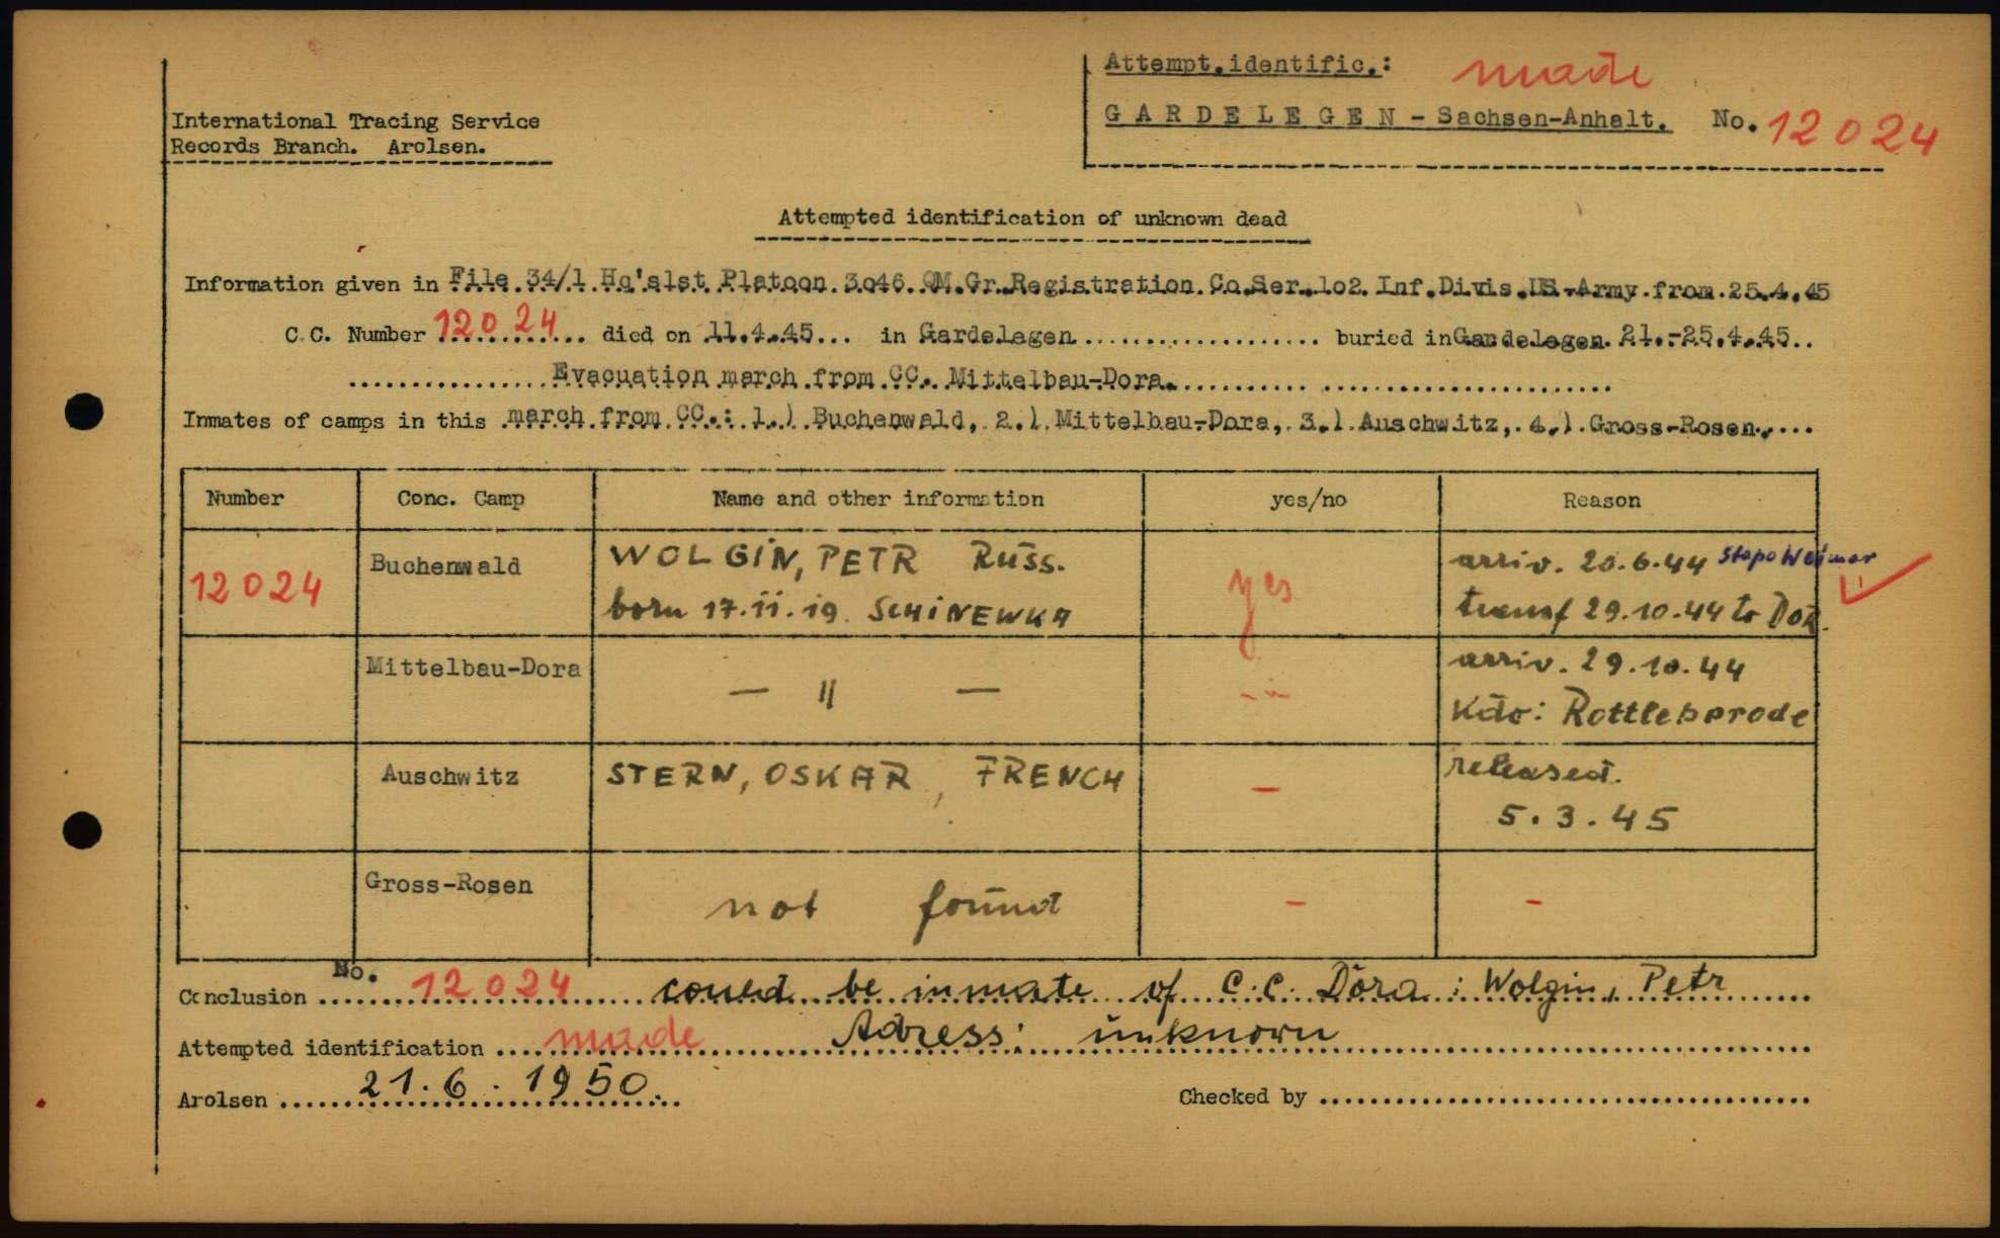 Attempt.identific.: made
GARDELEGEN - Sachsen-Anhalt. No. 12024
International Tracing Service
Records Branch. Arolsen.
Attempted identification of unknown dead
Information given in File 34/1 Hq's1st Platoon 3o46 QM.Gr.Registration Co.Ser.1o2 Inf.Divis.US-Army from 25.4.45
C.C. Number 12024 died on 11.4.45... in Gardelegen buried in Gardelegen 21.-25.4.45..
Evacuation march from CC. Mittelbau-Dora.
Inmates of camps in this march from CC.: 1.) Buchenwald, 2.) Mittelbau-Dora, 3.) Auschwitz, 4.) Gross-Rosen,...
Number Conc. Camp Name and other information yes/no Reason
12024 Buchenwald WOLGIN, PETR Russ. yes arriv. 20.6.44 Stapo Weimar
born 17.11.19. SCHINEWKA transf 29.10.44 to Dora
Mittelbau-Dora — " — - " - arriv. 29.10.44
Kdo: Rottleberode
Auschwitz STERN, OSKAR, FRENCH — released.
5.3.45
Gross-Rosen not found — —
Conclusion No. 12024 could be inmate of C.C. Dora: Wolgin, Petr
Attempted identification made Adress: unknown
Arolsen 21.6.1950. Checked by